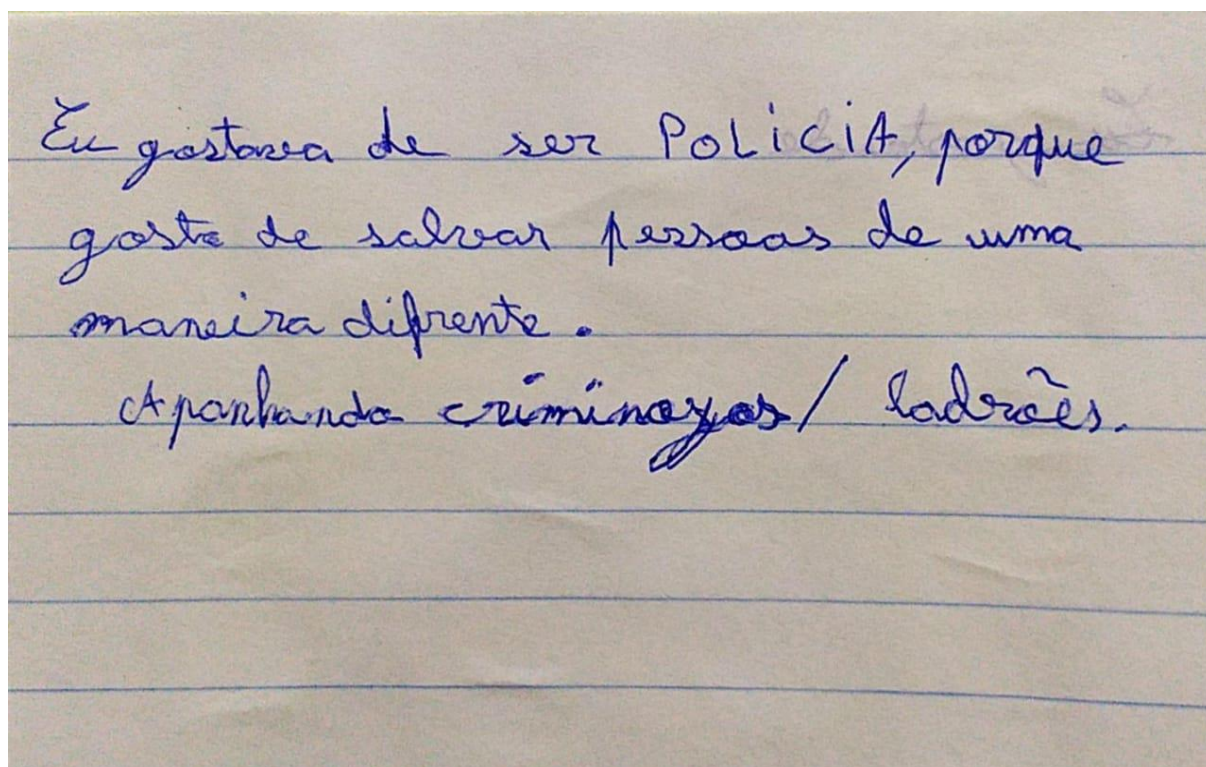 Eu gostava de ser POLiCiA, porque
gosto de salvar pessoas de uma
maneira difrente.
Apanhando criminozos / ladrões.